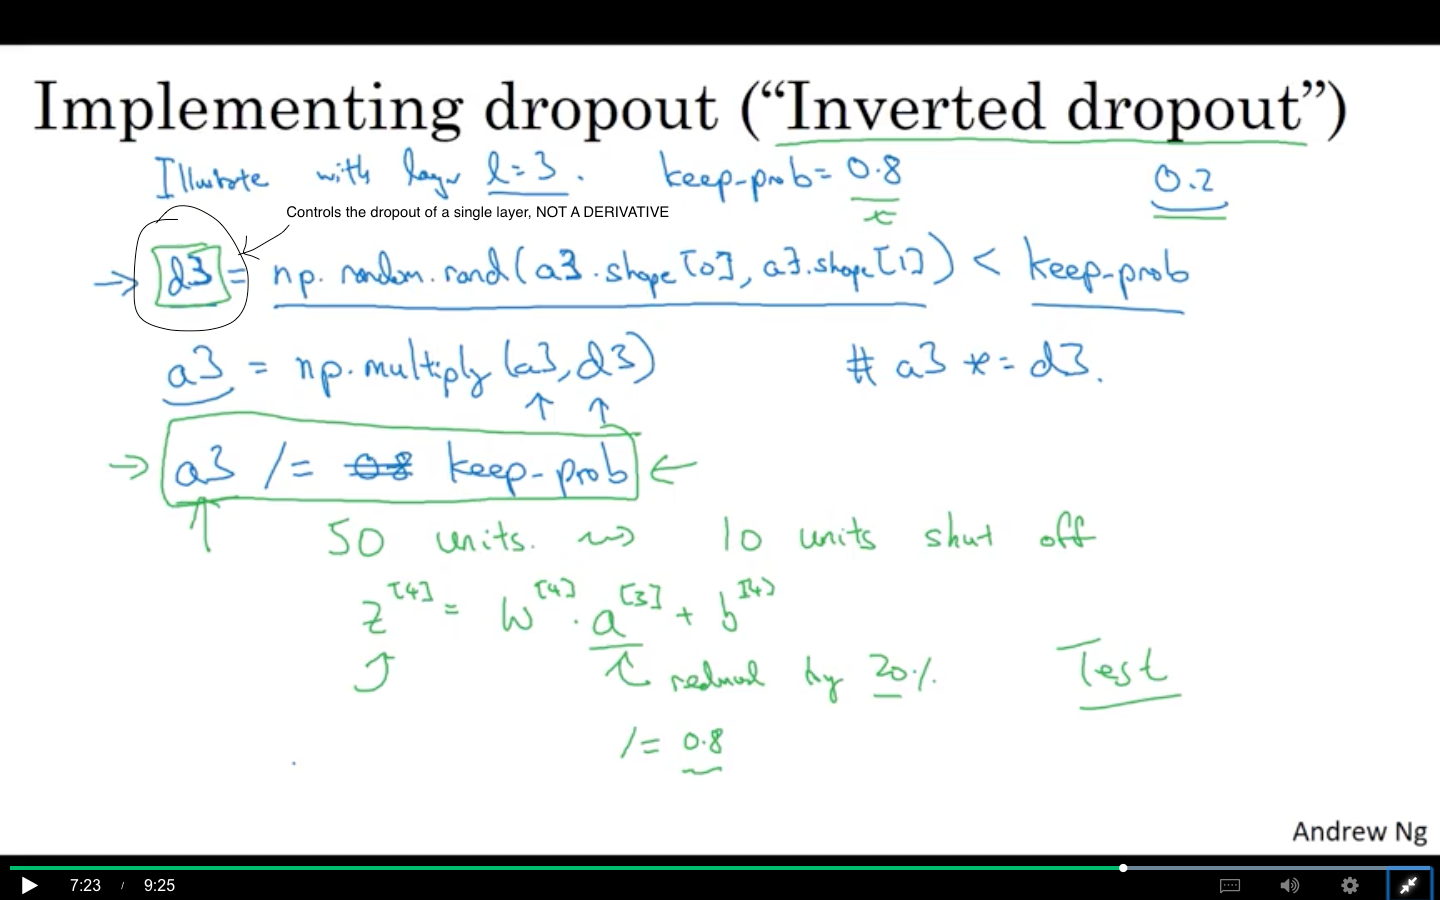 Implementing dropout (“Inverted dropout”)
Illustrate with layer l=3. keep-prob= 0.8 0.2
Controls the dropout of a single layer, NOT A DERIVATIVE
→ d3 = np.random.rand(a3.shape[0], a3.shape[1]) < keep-prob
a3 = np.multiply(a3, d3) # a3 *= d3.
↑ ↑
→ a3 /= 0.8 keep-prob ←
50 units. ⇝ 10 units shut off
z^[4] = W^[4] · a^[3] + b^[4]
reduced by 20%. Test
/= 0.8
Andrew Ng
7:23 / 9:25